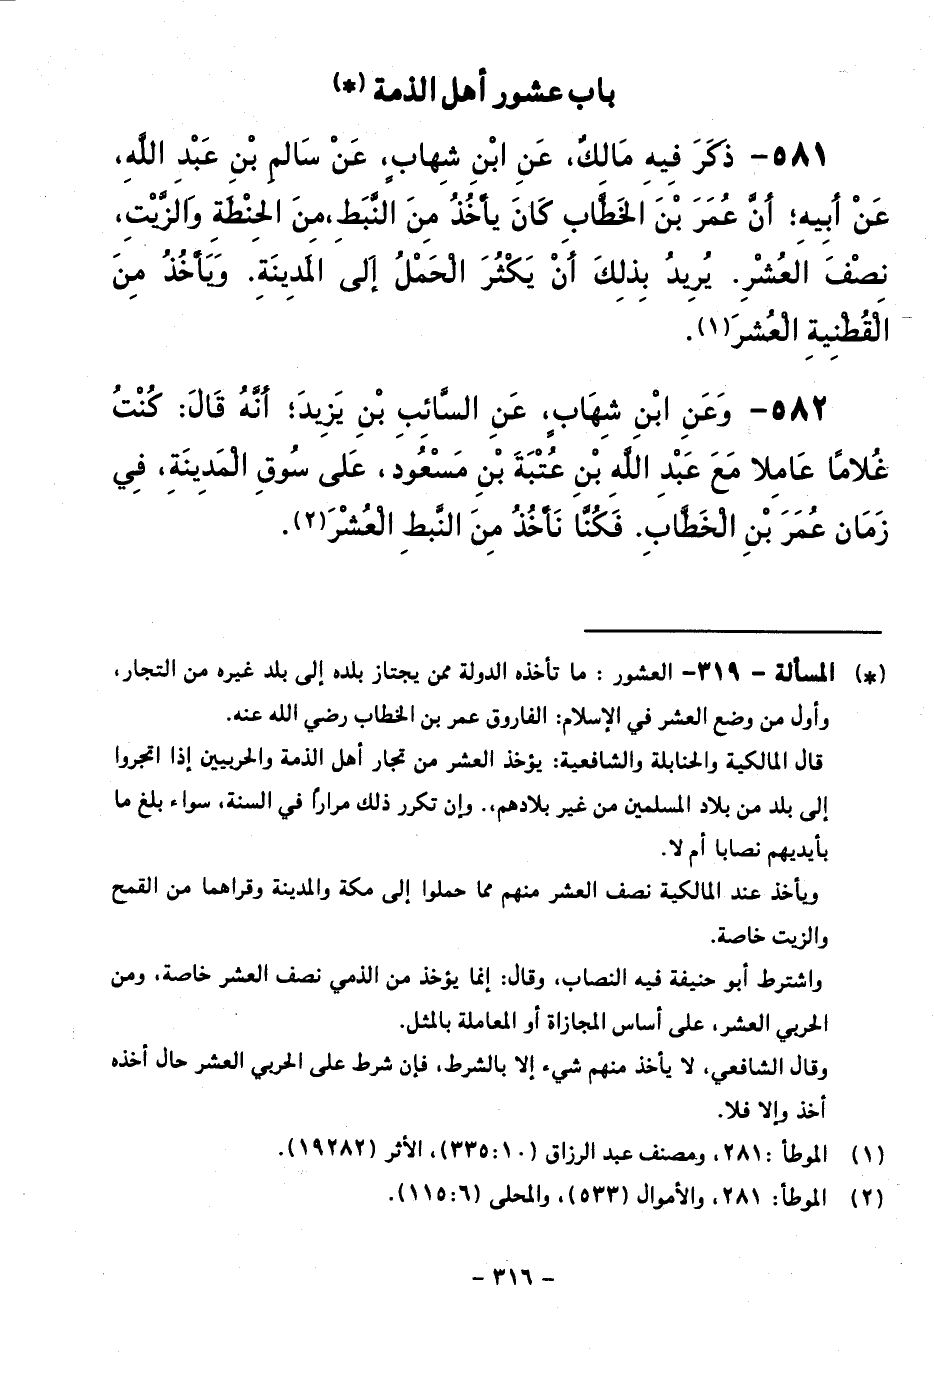 باب عشور أهل الذمة (*)
٥٨١- ذَكَرَ فِيهِ مَالِكٌ، عَنِ ابْنِ شِهابٍ، عَنْ سَالمِ بْنِ عَبْدِ اللَّهِ،
عَنْ أَبيهِ؛ أَنَّ عُمَرَ بْنَ الخَطَّابِ كَانَ يأخُذُ مِنَ النَّبَطِ،مِنَ الحِنْطَةِ وَالزَّيْتِ،
نِصْفَ العُشْرِ. يُرِيدُ بِذلِكَ أَنْ يَكْثُرَ الْحَمْلُ إِلَى المَدِينَةِ. وَيَأْخُذُ مِنَ
الْقُطْنِيةِ الْعُشرَ(١).
٥٨٢- وَعَنِ ابْنِ شِهَابٍ، عَنِ السَّائبِ بْنِ يَزِيدَ؛ أَنَّهُ قَالَ: كُنْتُ
غُلامًا عَامِلا مَعَ عَبْدِ اللَّهِ بْنِ عُتْبَةَ بْنِ مَسْعُودٍ، عَلَى سُوقِ الْمَدِينَةِ، فِي
زَمَانِ عُمَرَ بْنِ الْخَطَّابِ. فَكُنَّا نَأْخُذُ مِنَ النَّبطِ الْعُشْرَ(٢).
(*) المسألة - ٣١٩- العشور : ما تأخذه الدولة ممن يجتاز بلده إلى بلد غيره من التجار،
وأول من وضع العشر في الإسلام: الفاروق عمر بن الخطاب رضي الله عنه.
قال المالكية والحنابلة والشافعية: يؤخذ العشر من تجار أهل الذمة والحربيين إذا اتجروا
إلى بلد من بلاد المسلمين من غير بلادهم،. وإن تكرر ذلك مراراً في السنة، سواء بلغ ما
بأيديهم نصابا أم لا.
ويأخذ عند المالكية نصف العشر منهم مما حملوا إلى مكة والمدينة وقراهما من القمح
والزيت خاصة.
واشترط أبو حنيفة فيه النصاب، وقال: إنما يؤخذ من الذمي نصف العشر خاصة، ومن
الحربي العشر، على أساس المجازاة أو المعاملة بالمثل.
وقال الشافعي، لا يأخذ منهم شيء إلا بالشرط، فإن شرط على الحربي العشر حال أخذه
أخذ وإلا فلا.
(١) الموطأ :٢٨١، ومصنف عبد الرزاق (١٠:٣٣٥)، الأثر (١٩٢٨٢).
(٢) الموطأ: ٢٨١، والأموال (٥٣٣)، والمحلى (٦:١١٥).
- ٣١٦ -